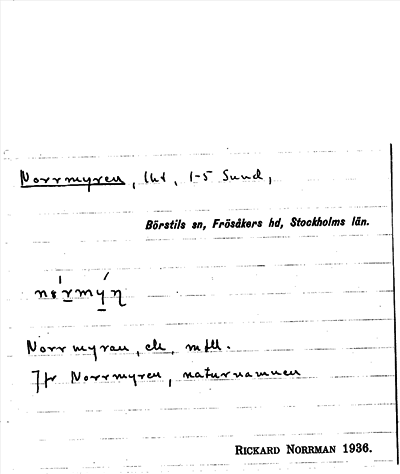 Norrmyren, lht, 1-5 Sund,
Börstils sn, Frösåkers hd, Stockholms län.
Norrmyran, ek, mfll.
Jfr Norrmyren, naturnamnen
RICKARD NORRMAN 1936.